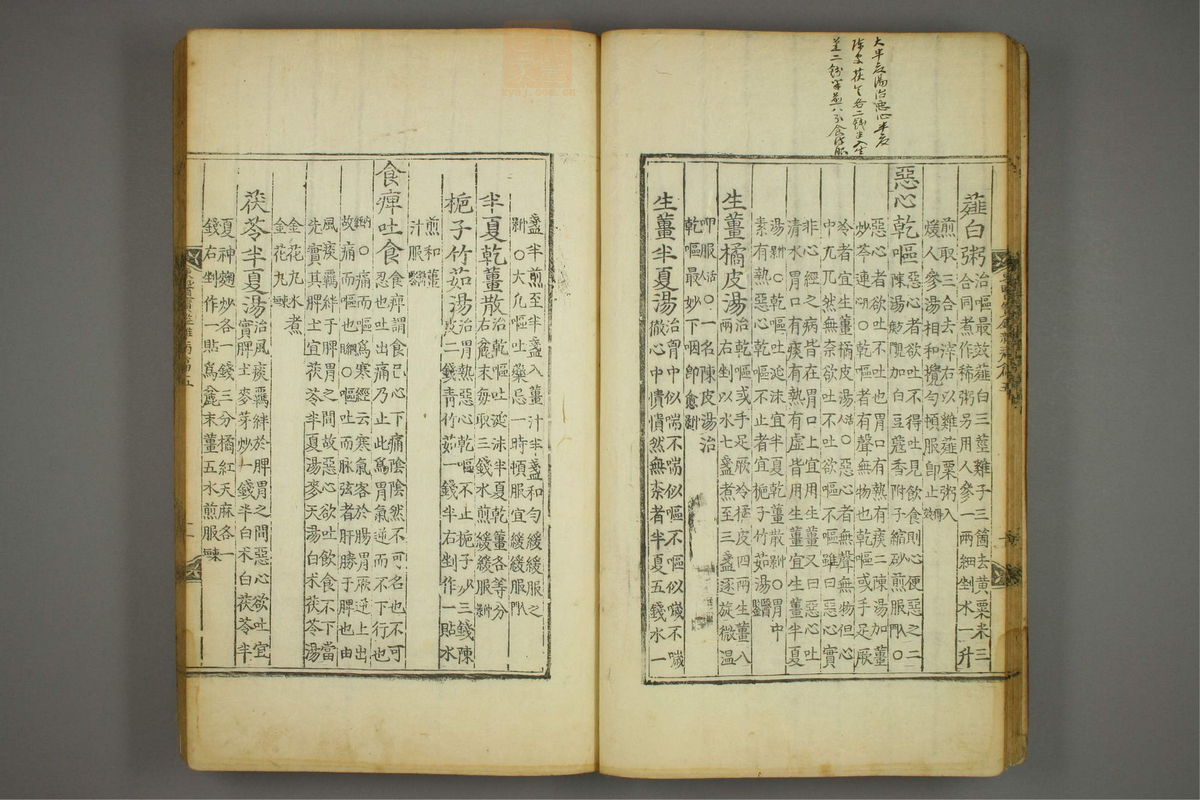 大半夏湯治惡心半夏
陳皮茯苓各二錢半入生
薤白粥治嘔最效薤白三莖雞子三箇去黃粟米三
合同煮作稀粥另用人參一兩細剉水一升
煎取三合去滓右以雞薤粟粥入
煖人參湯相和攪勻頓服卽止
惡心乾嘔惡心者欲吐不得吐見飲食則心便惡之二
陳湯加白豆蔻香附子縮砂煎服入門○
惡心者欲吐不吐也胃口有熱有痰二陳湯加薑
炒芩連○乾嘔者有聲無物也乾嘔或手足厥
冷者宜生薑橘皮湯活人○惡心者無聲無物但心
中兀兀然無奈欲吐不吐欲嘔不嘔雖曰惡心實
非心經之病皆在胃口上宜用生薑又曰惡心吐
清水胃口有痰有熱有虛皆用生薑宜生薑半夏
湯○乾嘔吐涎沫宜半夏乾薑散○胃中
素有熱惡心乾嘔不止者宜梔子竹茹湯醫鑑
生薑橘皮湯治乾嘔或手足厥冷橘皮四兩生薑八
兩右剉以水七盞煮至三盞逐旋微溫
呷服活人○一名陳皮湯治
乾嘔最妙下咽卽愈
生薑半夏湯治胃中似喘不喘似嘔不嘔似噦不噦
徹心中憒憒然無柰者半夏五錢水一
盞半煎至半盞入薑汁半盞和勻緩緩服之
○大凡嘔吐藥忌一時頓服宜緩緩服入門
半夏乾薑散治乾嘔吐涎沫半夏乾薑各等分
右麁末每取三錢水煎緩緩服
梔子竹茹湯治胃熱惡心乾嘔不止梔子炒三錢陳
皮二錢靑竹茹一錢半右剉作一貼水
煎和薑
汁服醫鑑
食痺吐食食痺謂食已心下痛陰陰然不可名也不可
忍也吐出痛乃止此爲胃氣逆而不下行也
○痛而嘔爲寒經云寒氣客於腸胃厥逆上出
故痛而嘔也○嘔吐而脉弦者肝勝于脾也由
風痰羈絆于脾胃之間故惡心欲吐飮食不下當
先實其脾土宜茯苓半夏湯麥天湯白朮茯苓湯
金花丸水煮
金花丸
茯苓半夏湯治風痰羈絆於脾胃之間惡心欲吐宜
實脾土麥芽炒一錢半白朮白茯苓半
夏神麴炒各一錢三分橘紅天麻各一
錢右剉作一貼爲麁末薑五水煎服